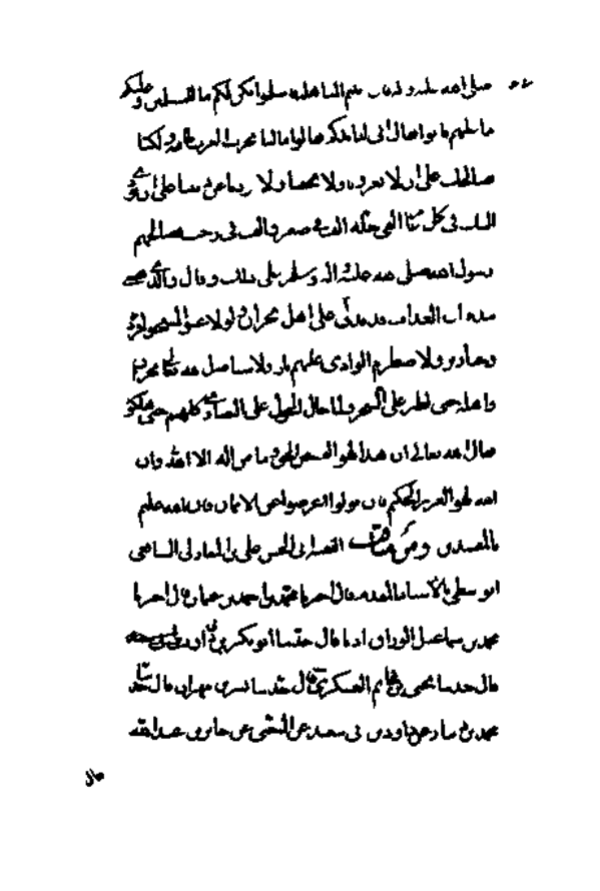 صلى الله عليه وسلم فان ابيتم المباهلة فاسلموا يكن لكم ما للمسلمين وعليكم
ما عليهم فابوا فقال انى انابذكم فقالوا مالنا بحرب العرب طاقة ولكنا
نصالحك على ان لا تغزونا ولا تخيفنا ولا تردنا عن ديننا على ان نؤدي
اليك فى كل سنة الفي حلة الف في صفر والف فى رجب فصالحهم
رسول الله صلى الله عليه واله وسلم على ذلك وقال والذي نفسي
بيده ان العذاب قد تدلى على اهل نجران ولو لاعنوا لمسخوا قردة
وخنازير ولاضطرم الوادى عليهم نار ولاستاصل الله تعالى نجران
واهله حتى الطير على الشجر ولما حال الحول على النصارى كلهم حتى هلكوا
فقال الله تعالى ان هذا لهو القصص الحق وما من اله الا الله وان
الله لهو العزيز الحكيم فان تولوا اعرضوا عن الايمان فان الله عليم
بالمفسدين ومن مناقب الفقيه ابى الحسن على بن المغازلى الشافعى
الواسطى بالاسناد اليه قال اخبرنا محمد بن احمد بن عثمان قال اخبرنا
محمد بن اسماعيل الوراق اذنا قال حدثنا ابو بكر بن ابى داود
قال حدثنا يحيى بن حاتم العسكرى قال حدثنا بشر بن مهران قال حدثنا
محمد بن دينار عن داود بن ابى هند عن الشعبى عن جابر بن عبد الله
قال